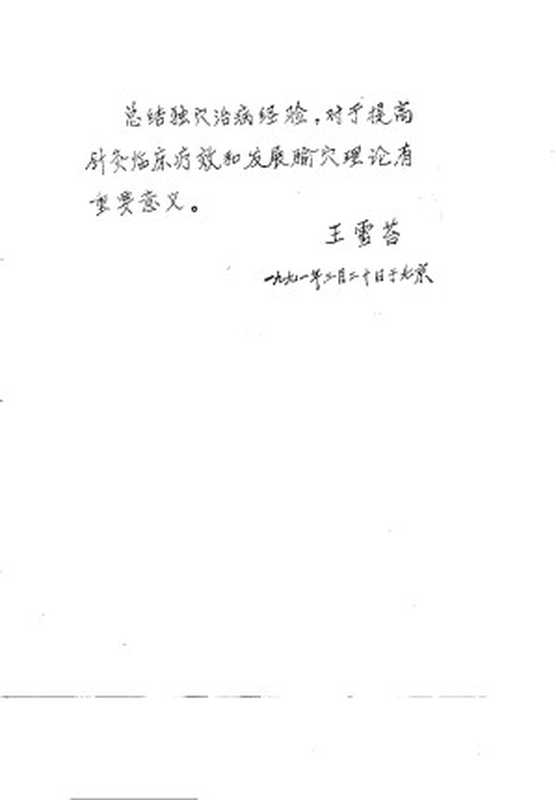 总结独穴治病经验，对于提高
针灸临床疗效和发展腧穴理论有
重要意义。
王雪苔
一九九一年二月二十日于北京